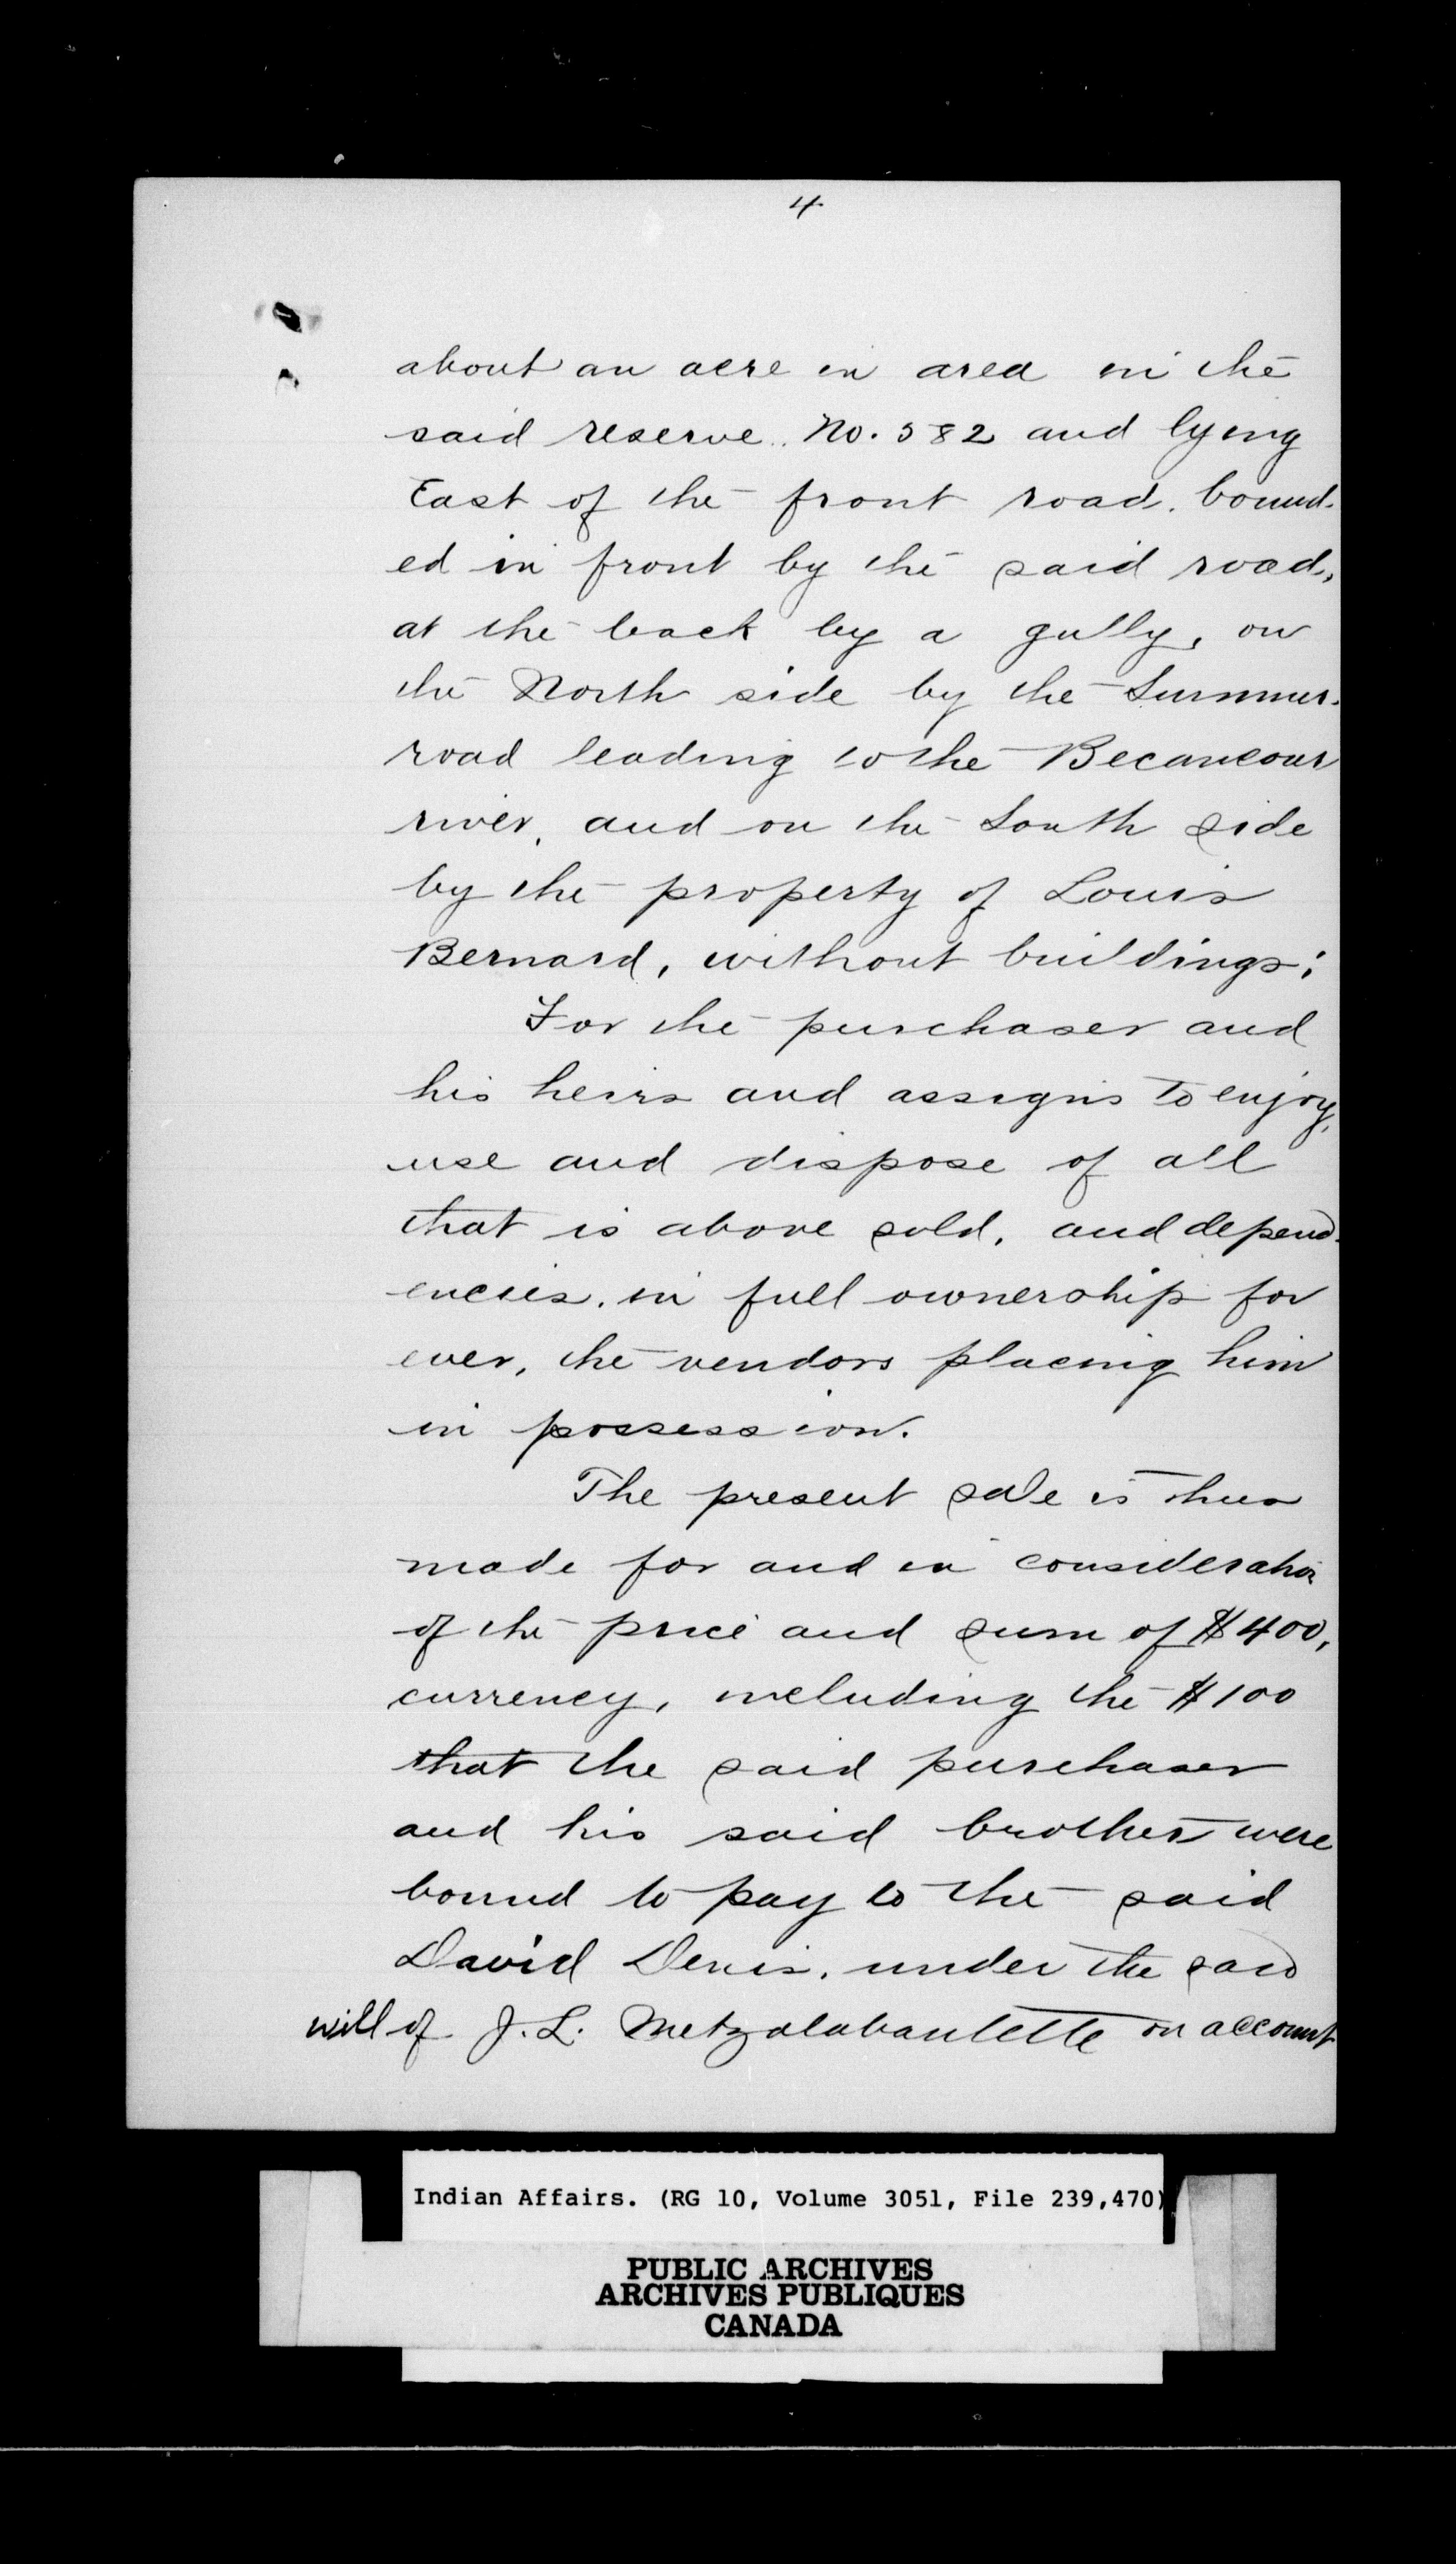 4
about an acre in area in the
said reserve No. 582 and lying
East of the front road, bound-
ed in front by the said road,
at the back by a gully, on
the North side by the Summer-
road leading to the Becancour
river, and on the South side
by the property of Louis
Bernard, without buildings;
For the purchaser and
his heirs and assigns to enjoy,
use and dispose of all
that is above sold, and depend-
encies, in full ownership for
ever, the vendors placing him
in possession.
The present sale is thus
made for and in consideration
of the price and sum of $400,
currency, including the $100
that the said purchaser
and his said brother were
bound to pay to the said
David Denis, under the said
will of J. L. Metzalabanlette on account
Indian Affairs. (RG 10, Volume 3051, File 239,470)
PUBLIC ARCHIVES
ARCHIVES PUBLIQUES
CANADA